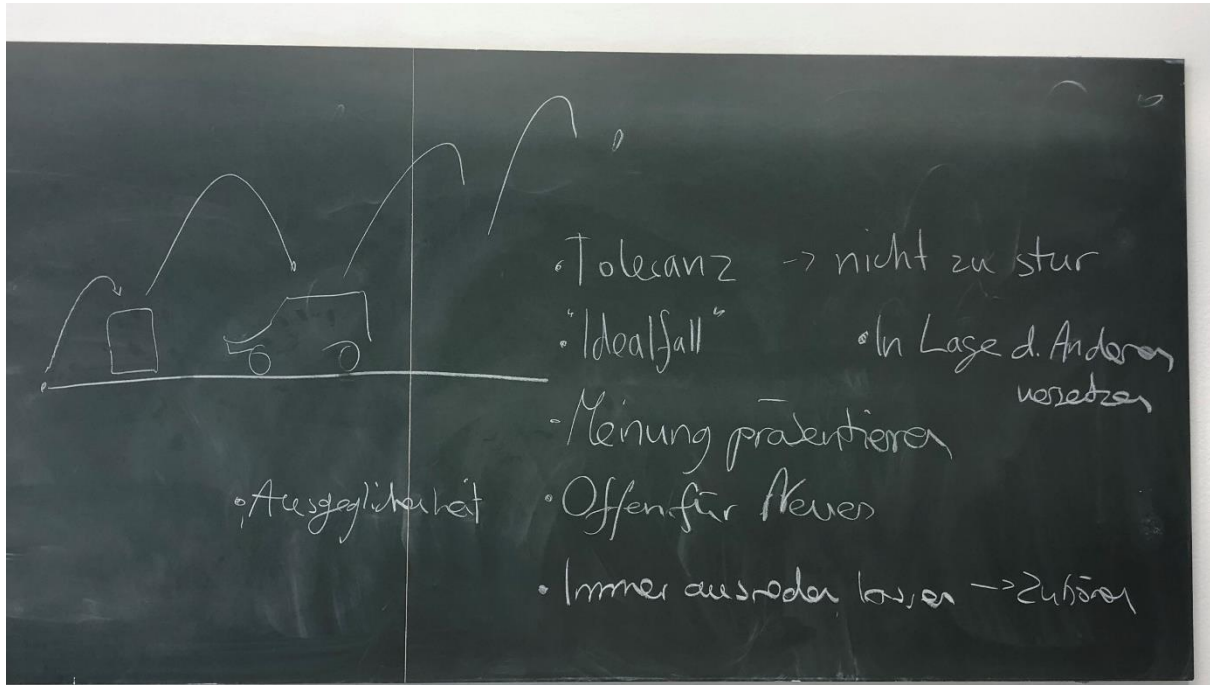 • Toleranz -> nicht zu stur
• "Idealfall"
• In Lage d. Anderen
versetzen
• Meinung präsentieren
• Ausgeglichenheit
• Offen für Neues
• Immer ausreden lassen -> Zuhören